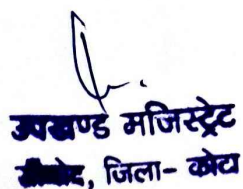 उपखण्ड मजिस्ट्रेट
, जिला- कोटा